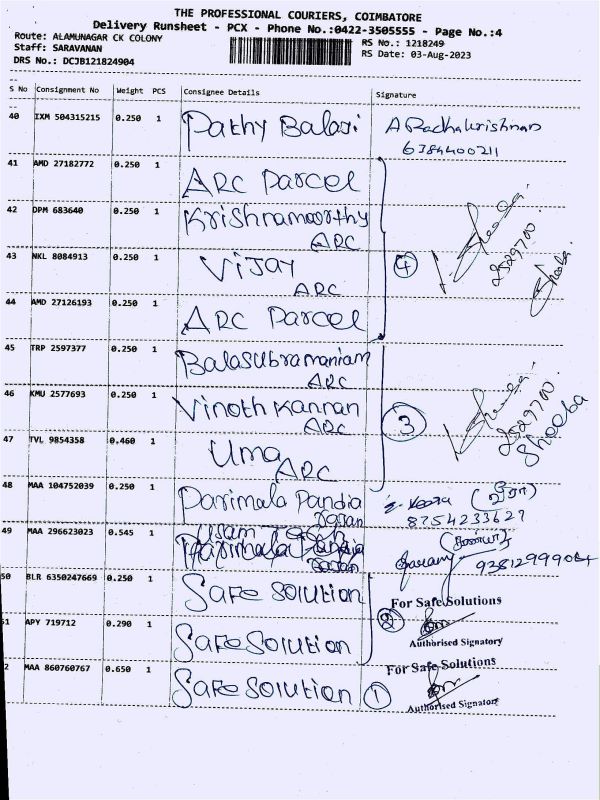 THE PROFESSIONAL COURIERS, COIMBATORE
Delivery Runsheet - PCX - Phone No.:0422-3505555 - Page No.:4
Route: ALAMUNAGAR CK COLONY
RS No.: 1218249
Staff: SARAVANAN
RS Date: 03-Aug-2023
DRS No.: DCJB121824904
S No Consignment No Weight PCS Consignee Details Signature
40 IXM 504315215 0.250 1 Pathy Balaji A Radhakrishnan
6384400211
41 AMD 27182772 0.250 1 ARC Parcel
42 DPM 683640 0.250 1 Krishnamoorthy
ARC
43 NKL 8084913 0.250 1 Vijay 4 2529700
ARC Sheeba
44 AMD 27126193 0.250 1 ARC Parcel
45 TRP 2597377 0.250 1 Balasubramaniam
ARC
46 KMU 2577693 0.250 1 Vinoth Kannan 3 2529700
ARC Sheeba
47 TVL 9854358 0.460 1 Uma
ARC
48 MAA 104752039 0.250 1 Parimala Pandia
Rajan 8754233627
49 MAA 296623023 0.545 1
50 BLR 6350247669 0.250 1 Safe Solution
For Safe Solutions
51 APY 719712 0.290 1 Safe Solution 2
Authorised Signatory
2 MAA 860760767 0.650 1 Safe Solution 1
For Safe Solutions
Authorised Signatory